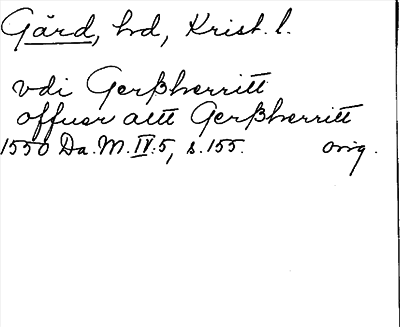 Gärd, hd, Krist. l.
vdi Gerßherritt
offuer altt Gerßherritt
1550 Da. M. IV:5, s. 155. orig.